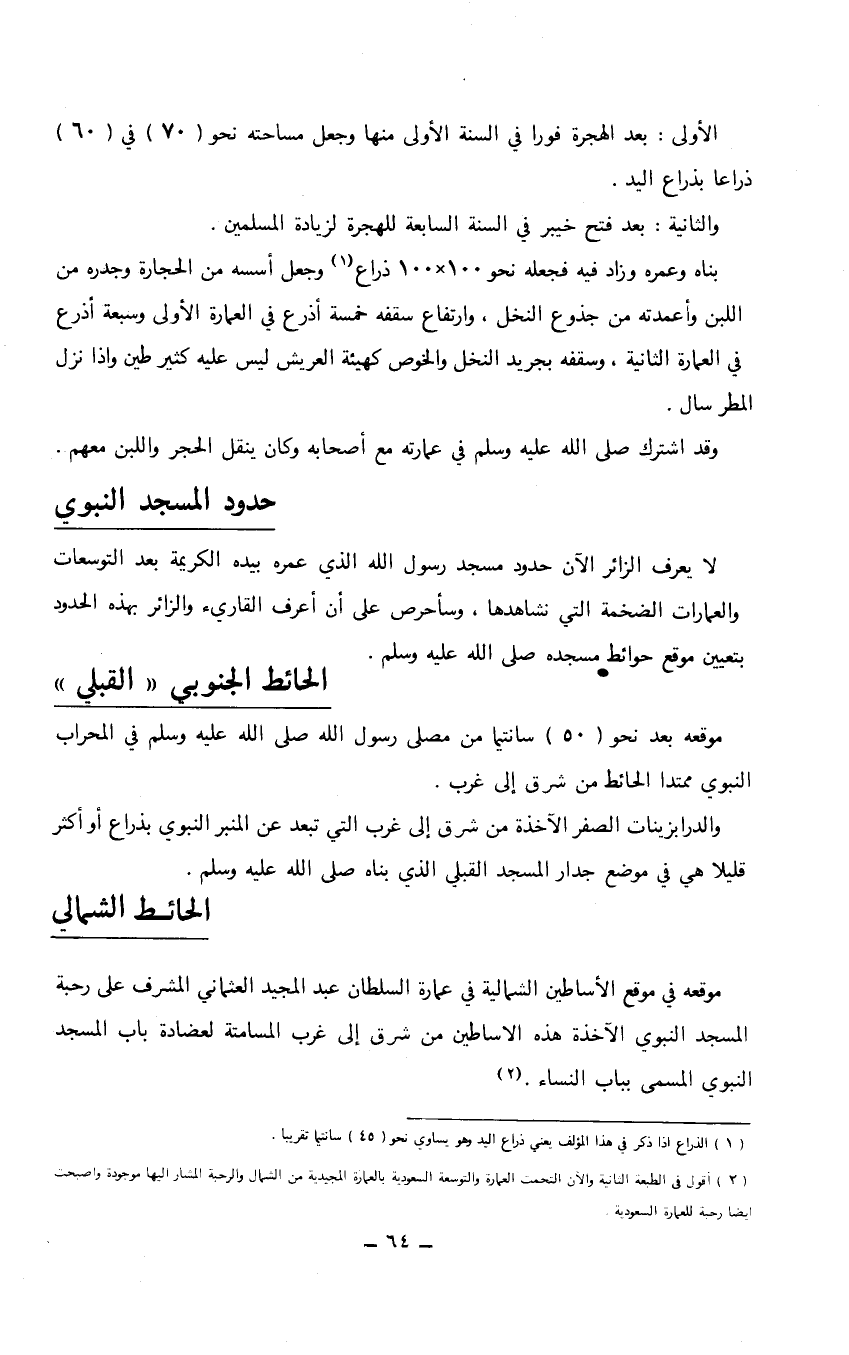 الأولى : بعد الهجرة فورا في السنة الأولى منها وجعل مساحته نحو ( ٧٠ ) في ( ٦٠ )
ذراعا بذراع اليد .
والثانية : بعد فتح خيبر في السنة السابعة للهجرة لزيادة المسلمين .
بناه وعمره وزاد فيه فجعله نحو ١٠٠×١٠٠ ذراع(١) وجعل أسسه من الحجارة وجدره من
اللبن وأعمدته من جذوع النخل ، وارتفاع سقفه خمسة أذرع في العمارة الأولى وسبعة أذرع
في العمارة الثانية ، وسقفه بجريد النخل والخوص كهيئة العريش ليس عليه كثير طين واذا نزل
المطر سال .
وقد اشترك صلى الله عليه وسلم في عمارته مع أصحابه وكان ينقل الحجر واللبن معهم .
حدود المسجد النبوي
لا يعرف الزائر الآن حدود مسجد رسول الله الذي عمره بيده الكريمة بعد التوسعات
والعمارات الضخمة التي نشاهدها ، وسأحرص على أن أعرف القاريء والزائر بهذه الحدود
بتعيين موقع حوائط مسجده صلى الله عليه وسلم .
الحائط الجنوبي « القبلي »
موقعه بعد نحو ( ٥٠ ) سانتيا من مصلى رسول الله صلى الله عليه وسلم في المحراب
النبوي ممتدا الحائط من شرق إلى غرب .
والدرابزينات الصفر الآخذة من شرق إلى غرب التي تبعد عن المنبر النبوي بذراع أو أكثر
قليلا هي في موضع جدار المسجد القبلي الذي بناه صلى الله عليه وسلم .
الحائط الشمالي
موقعه في موقع الأساطين الشمالية في عمارة السلطان عبد المجيد العثماني المشرف على رحبة
المسجد النبوي الآخذة هذه الاساطين من شرق إلى غرب المسامتة لعضادة باب المسجد
النبوي المسمى بباب النساء .(٢)
( ١ ) الذراع اذا ذكر في هذا المؤلف يعني ذراع اليد وهو يساوي نحو ( ٤٥ ) سانتيا تقريبا .
( ٢ ) أقول في الطبعة الثانية والآن التحمت العمارة والتوسعة السعودية بالعمارة المجيدية من الشمال والرحبة المشار اليها موجودة واصبحت
ايضا رحبة للعمارة السعودية .
– ٦٤ –